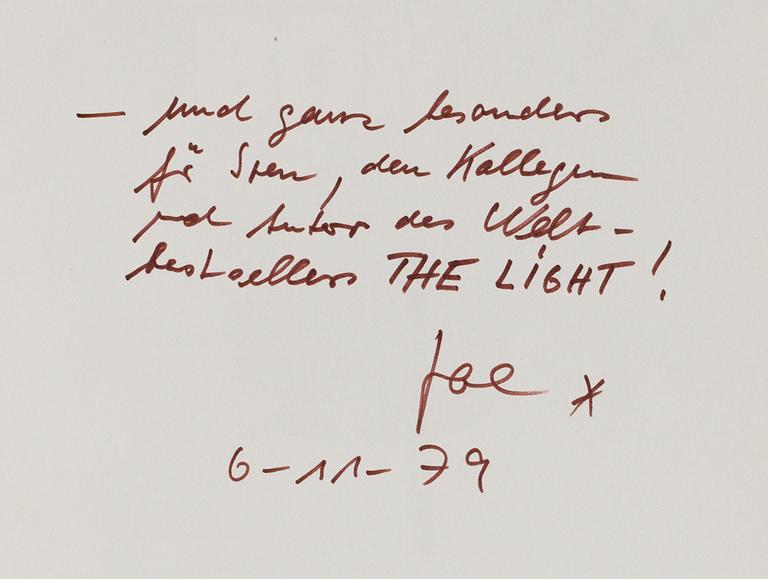 — und ganz besonders
für Sven, den Kollegen
und Autor des Welt-
bestsellers THE LIGHT!
Joe *
6-11-79